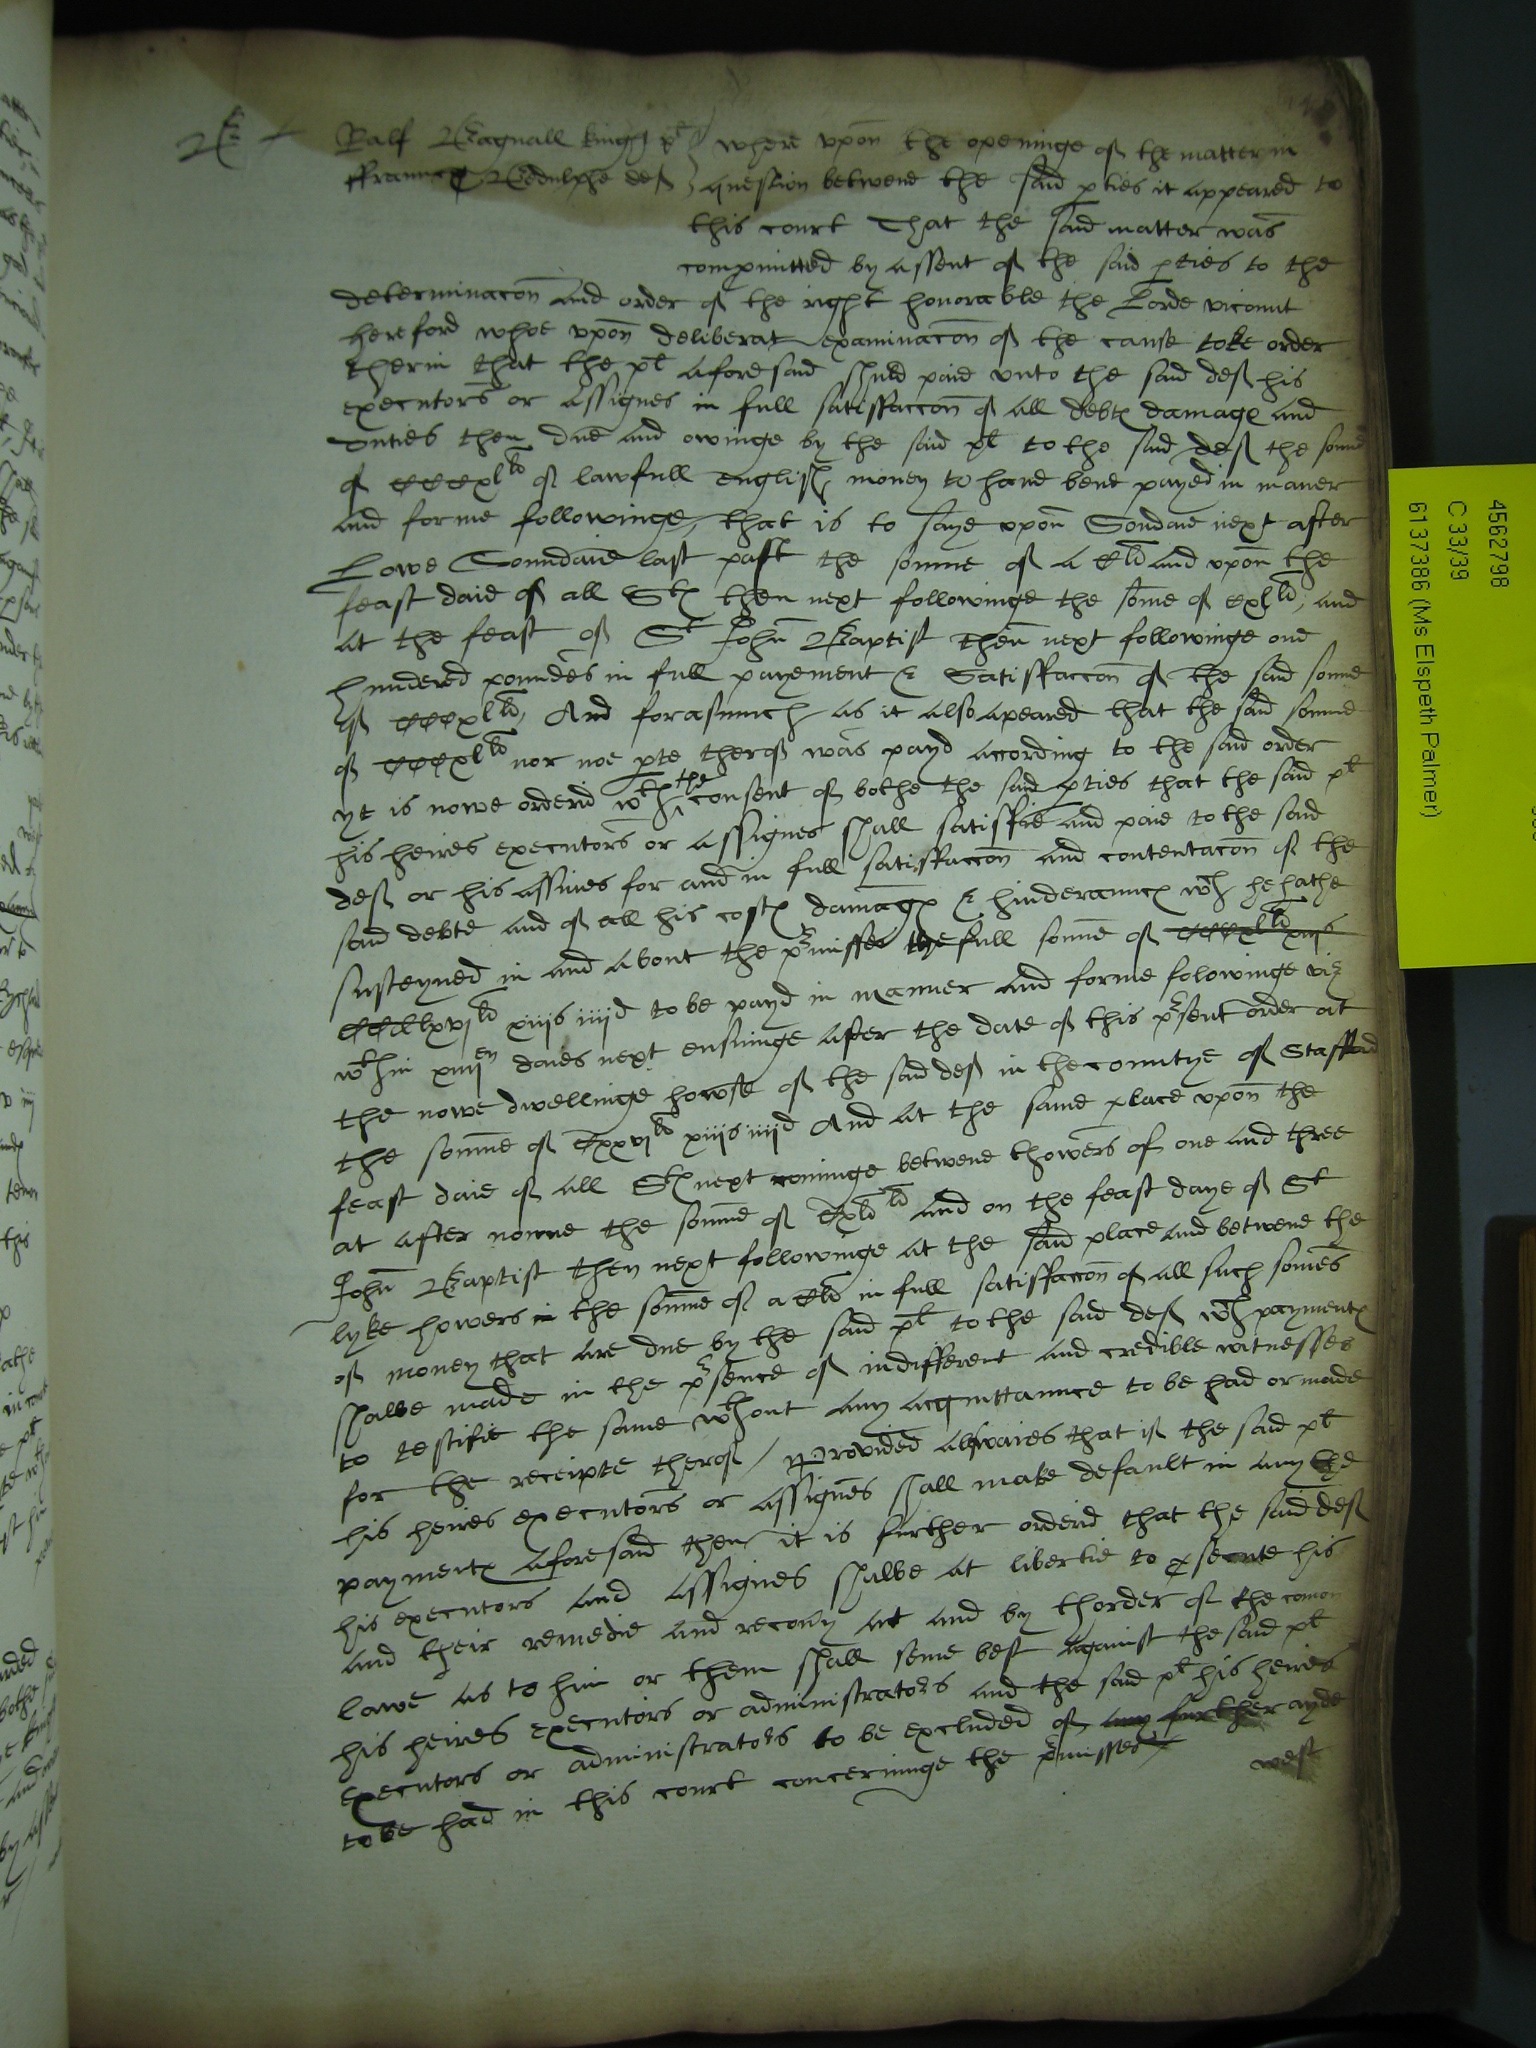 Ralf Bagnall knight plt where upon the openinge of the matter in
Fraunc Bedulphe def question betwene the said pties it appeared to
this court That the said matter was
compmitted by assent of the said pties to the
determinacon and order of the right honorable the Lorde vicount
hereford whoe upon deliberat examinacon of the cause toke order
therin that the plt aforesaid shuld paie unto the said def his
executors or assignes in full satisfaccon of all debtes damages and
duties then due and owinge by the said plt to the said def the somme
of cccxl li of lawfull english money to have bene payed in maner
and forme followinge, that is to saye upon Sondaie next after
Lowe Sounndaie last past the somme of a C li and upon the
feast daie of all Stes then next followinge the some of cxl li, and
at the feast of St John Baptist then next followinge one
hundered poundes in full payement & Satisfaccon of the said somme
of cccxl li, And forasmuch as it also apeared that the said somme
of cccxl li nor noe pte therof was payd according to the said order
yt is nowe orderid wth the consent of bothe the said pties that the said plt
his heires executors or assignes shall satisfie and paie to the said
def or his assines for and in full satisfaccon and contentacon of the
said debte and of all his costes damages & hinderaunces wch he hathe
susteyned in and about the pmisses the full somme of cccxl li xiijs
ccclxvj li xiijs iiijd to be payd in manner and forme folowinge viz
wthin xiiijen daies next ensuinge after the date of this psent order at
the nowe dwellinge howse of the said def in the countye of Stafford
the somme of Cxxvj li xiijs iiijd And at the same place upon the
feast daie of all Stes next cominge betwene thowers of one and three
at after nonne the somme of Cxl li and on the feast daye of St
John Baptist then next followinge at the said place and betwene the
lyke howers in the somme of a C li in full satisfaccon of all such somes
of money that are due by the said plt to the said def wch paymentes
shalbe made in the psence of indifferent and credible witnesses
to testifie the same wthout any acquittaunce to be had or made
for the receipte therof / Provided alwaies that if the said plt
his heires executors or assignes shall make default in any the
paymentes aforesaid then it is further orderid that the said def
his executors and assignes shalbe at libertie to psecute his
and their remedie and recovy at and by thorder of the comon
lawe as to him or them shall seme best against the said plt
his heires executors or administrators and the said plt his heires
executors or administrators to be excluded of any further ayde
to be had in this court concerninge the pmisses
west
4562798
C 33/39
6137386 (Ms Elspeth Palmer)